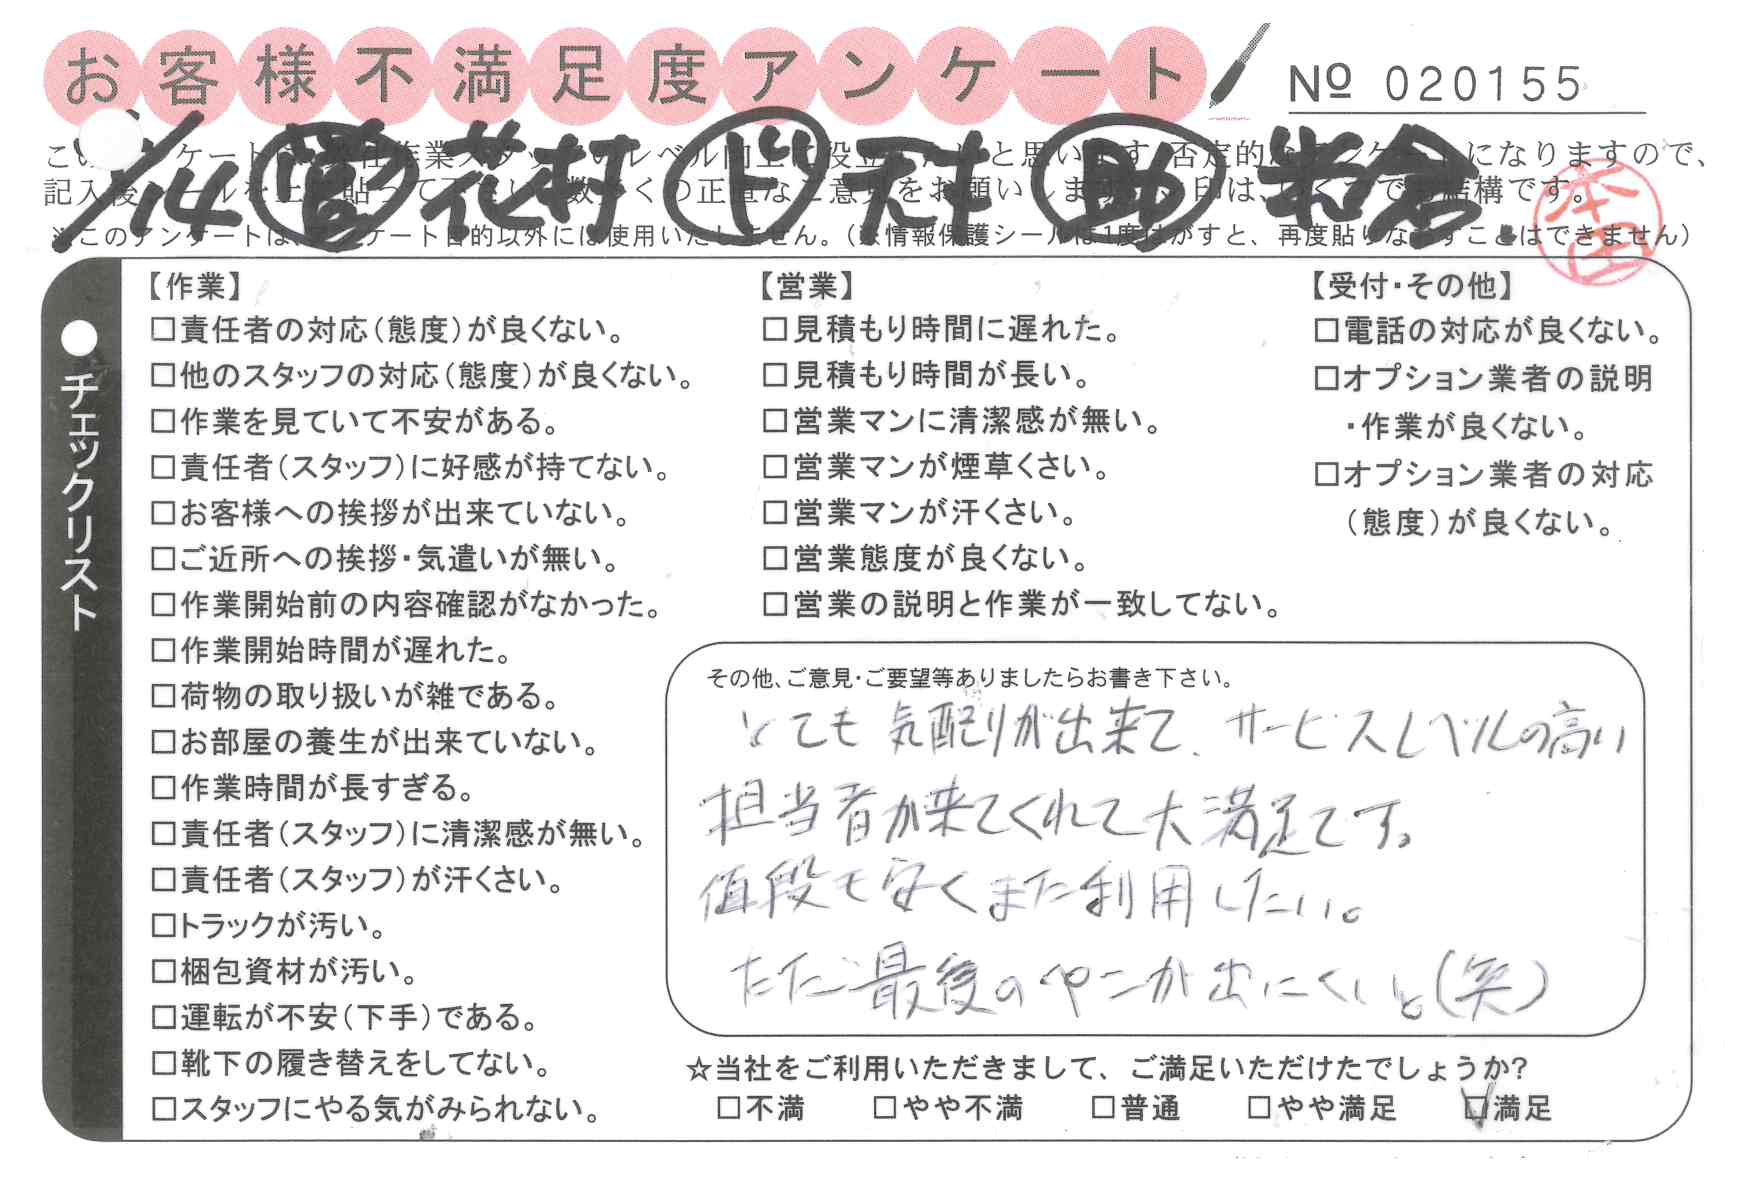 お客様不満足度アンケート
№ 020155
/14 営 花村 ド 天本 助 岩倉
このアンケートは、作業スタッフのレベル向上に役立と思います 否定的なアンケートになりますので、
記入後シールを上に貼って下さい 数多くの正直なご意見をお願いします 印は、いくつでも結構です。
※このアンケートは、アンケート目的以外には使用いたしません。(※情報保護シールは1度はがすと、再度貼りなおすことはできません)
本田
チェックリスト
【作業】
□責任者の対応(態度)が良くない。
□他のスタッフの対応(態度)が良くない。
□作業を見ていて不安がある。
□責任者(スタッフ)に好感が持てない。
□お客様への挨拶が出来ていない。
□ご近所への挨拶・気遣いが無い。
□作業開始前の内容確認がなかった。
□作業開始時間が遅れた。
□荷物の取り扱いが雑である。
□お部屋の養生が出来ていない。
□作業時間が長すぎる。
□責任者(スタッフ)に清潔感が無い。
□責任者(スタッフ)が汗くさい。
□トラックが汚い。
□梱包資材が汚い。
□運転が不安(下手)である。
□靴下の履き替えをしてない。
□スタッフにやる気がみられない。
【営業】
□見積もり時間に遅れた。
□見積もり時間が長い。
□営業マンに清潔感が無い。
□営業マンが煙草くさい。
□営業マンが汗くさい。
□営業態度が良くない。
□営業の説明と作業が一致してない。
【受付・その他】
□電話の対応が良くない。
□オプション業者の説明
・作業が良くない。
□オプション業者の対応
(態度)が良くない。
その他、ご意見・ご要望等ありましたらお書き下さい。
とても気配りが出来て、サービスレベルの高い
担当者が来てくれて大満足です。
値段も安くまた利用したい。
ただ最後のペンが出にくいと(笑)
☆当社をご利用いただきまして、ご満足いただけたでしょうか?
□不満 □やや不満 □普通 □やや満足 ☑満足